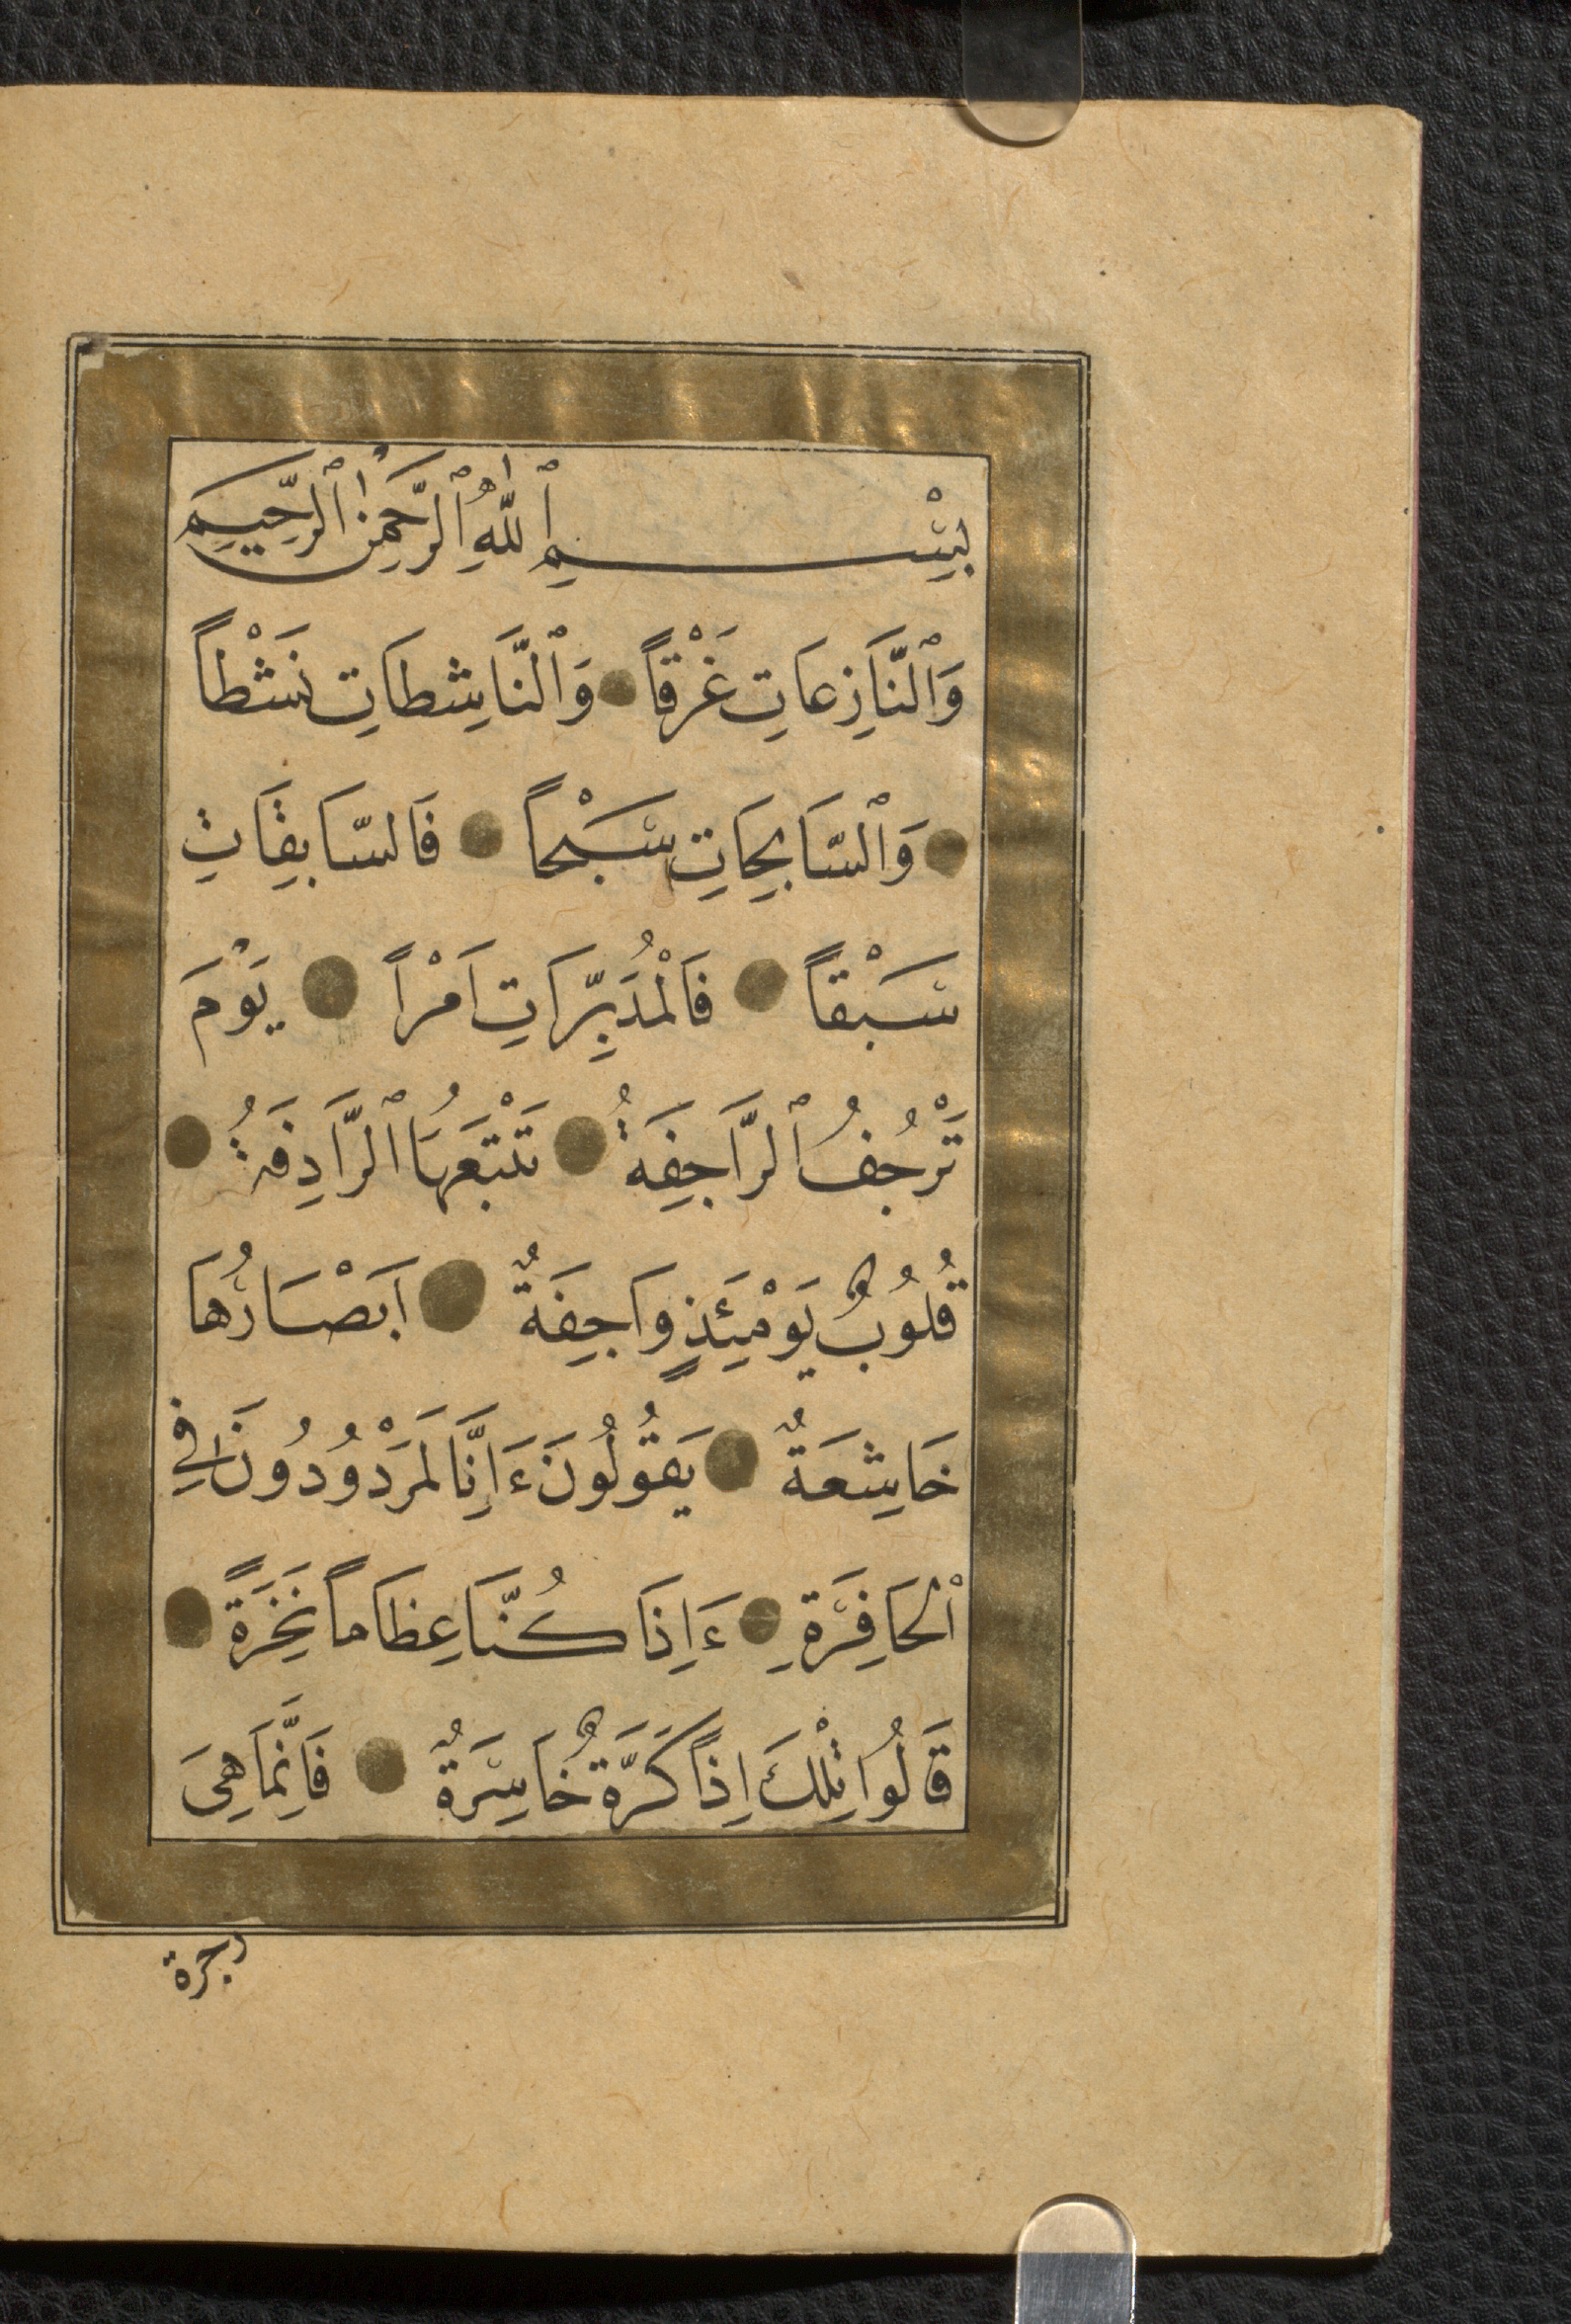 بِسْمِ ٱللّٰهِ ٱلرَّحْمٰنِ ٱلرَّحِيمِ
وَٱلنَّازِعَاتِ غَرْقاً وَٱلنَّاشِطَاتِ نَشْطاً
وَٱلسَّابِحَاتِ سَبْحاً فَالسَّابِقَاتِ
سَبْقاً فَالْمُدَبِّرَاتِ اَمْراً يَوْمَ
تَرْجُفُ ٱلرَّاجِفَةُ تَتْبَعُهَا ٱلرَّادِفَةُ
قُلُوبٌ يَوْمَئِذٍ وَاجِفَةٌ اَبْصَارُهَا
خَاشِعَةٌ يَقُولُونَ ءَاِنَّا لَمَرْدُودُونَ فِي
ٱلْحَافِرَةِ ءَاِذَا كُنَّا عِظَاماً نَخِرَةً
قَالُوا تِلْكَ اِذاً كَرَّةٌ خَاسِرَةٌ فَاِنَّمَا هِيَ
زجرة